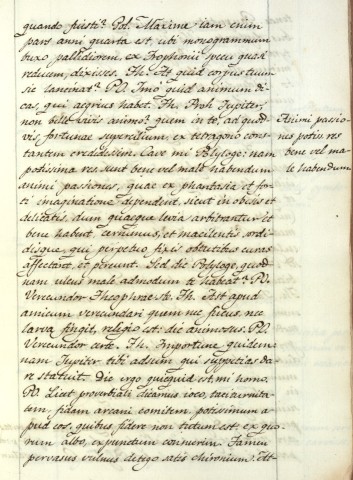 quando fuisti? Pol. Maxime: iam enim
pars anni quarta est, ubi monogrammum
buxo pallidiorem, ex Trophonii specu quasi
reducem, dixisses. Th. At quid corpus tuum
sic lancinat? PO. Imò quid animum di-
cas, qui aegrius habet. Th. Proh Jupiter,
non bille viris animos? quem in te, ad quod-
vis, fortunae supercilium, ex tetragono cons-
tantem credidissem. Cave mi Polyloge: nam
potissima res sunt bene vel male habendum
animi passiones, quae ex phantasia et for-
ti imaginatione dependent, sicut in obesis et
delitatis, dum quaeque levia arbitrantur et
bene habent, cernimus, et macilentis, ordi-
disque, qui perpetuo, fixis obtutibus curas
affectant, et pereunt. Sed dic Polyloge, quod-
nam ulcus male admodum te habeat? PO.
Verecundor Theophraste. Th. Ast apud
amicum verecundari quem nec fucus nec
larva fingit, religio est: dic animosus. PO.
Verecundor certe. Th. Importune quidem:
nam Jupiter tibi adsum qui suppetias da-
re statuit. Dic ergo quicquid est mi homo.
PO. Licet proverbiali dicamus ioco, taciturnita-
tem, fidam arcani comitem, potissimum a-
pud eos, quibus fidere non tutum est: ex quo-
rum albo, expunctum connumerim. Tamen
pervasus vulnus detego satis chironium. At
Animi passio-
nes potis res
bene vel ma-
le habendum